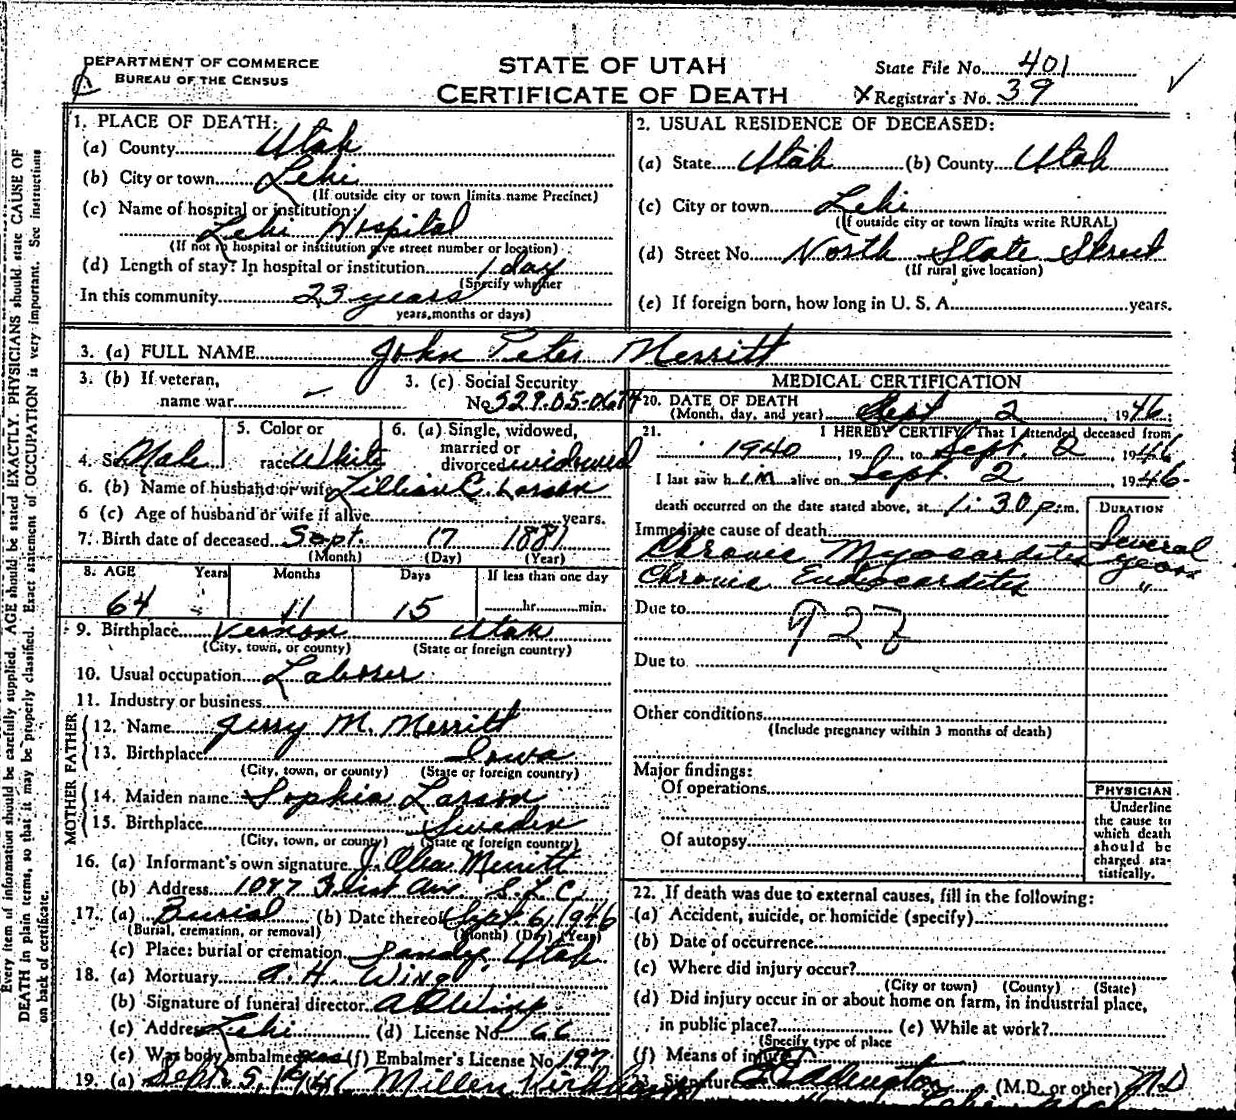 DEPARTMENT OF COMMERCE
BUREAU OF THE CENSUS
STATE OF UTAH
CERTIFICATE OF DEATH
State File No. 401
X Registrar's No. 39
Every item of information should be carefully supplied. AGE should be stated EXACTLY. PHYSICIANS should state CAUSE OF
DEATH in plain terms, so that it may be properly classified. Exact statement of OCCUPATION is very important. See instructions
on back of certificate.
1. PLACE OF DEATH:
(a) County Utah
(b) City or town Lehi
(If outside city or town limits name Precinct)
(c) Name of hospital or institution:
Lehi Hospital
(If not in hospital or institution give street number or location)
(d) Length of stay? In hospital or institution 1 day
(Specify whether
In this community 23 years
years, months or days)
2. USUAL RESIDENCE OF DECEASED:
(a) State Utah (b) County Utah
(c) City or town Lehi
(If outside city or town limits write RURAL)
(d) Street No. North State Street
(If rural give location)
(e) If foreign born, how long in U. S. A. years.
3. (a) FULL NAME John Peter Merritt
3. (b) If veteran,
name war –
3. (c) Social Security
No 529-05-0674
4. Sex Male
5. Color or
race White
6. (a) Single, widowed,
married or
divorced widowed
6. (b) Name of husband or wife Lillian C. Larson
6 (c) Age of husband or wife if alive years.
7. Birth date of deceased Sept. 17 1881
(Month) (Day) (Year)
8. AGE Years Months Days If less than one day
64 11 15 hr. min.
9. Birthplace Vernon Utah
(City, town, or county) (State or foreign country)
10. Usual occupation Laborer
11. Industry or business
FATHER
12. Name Jerry M. Merritt
13. Birthplace Iowa
(City, town, or county) (State or foreign country)
MOTHER
14. Maiden name Sophia Larson
15. Birthplace Sweden
(City, town, or county) (State or foreign country)
16. (a) Informant's own signature J. Merritt
(b) Address Ave S.L.C.
17. (a) Burial (b) Date thereof Sept. 6, 1946
(Burial, cremation, or removal) (Month) (Day) (Year)
(c) Place: burial or cremation Sandy Utah
18. (a) Mortuary A. H. Wing
(b) Signature of funeral director Wing
(c) Address Lehi (d) License No. 66
(e) Was body embalmed yes (f) Embalmer's License No. 197
19. (a) Sept. 5,
MEDICAL CERTIFICATION
20. DATE OF DEATH
(Month, day, and year) Sept 2 1946
21. I HEREBY CERTIFY, That I attended deceased from
1940, 19 , to Sept. 2, 1946
I last saw him alive on Sept. 2, 1946.
death occurred on the date stated above, at 1:30 p.m.
DURATION
Immediate cause of death
Chronic Myocarditis Several years
Chronic Endocarditis "
Due to
Due to
Other conditions
(Include pregnancy within 3 months of death)
Major findings:
Of operations
Of autopsy
PHYSICIAN
Underline
the cause to
which death
should be
charged sta-
tistically.
22. If death was due to external causes, fill in the following:
(a) Accident, suicide, or homicide (specify)
(b) Date of occurrence
(c) Where did injury occur?
(City or town) (County) (State)
(d) Did injury occur in or about home on farm, in industrial place,
in public place? (e) While at work?
(Specify type of place
(f) Means of injury
23. Signature (M.D. or other) M D